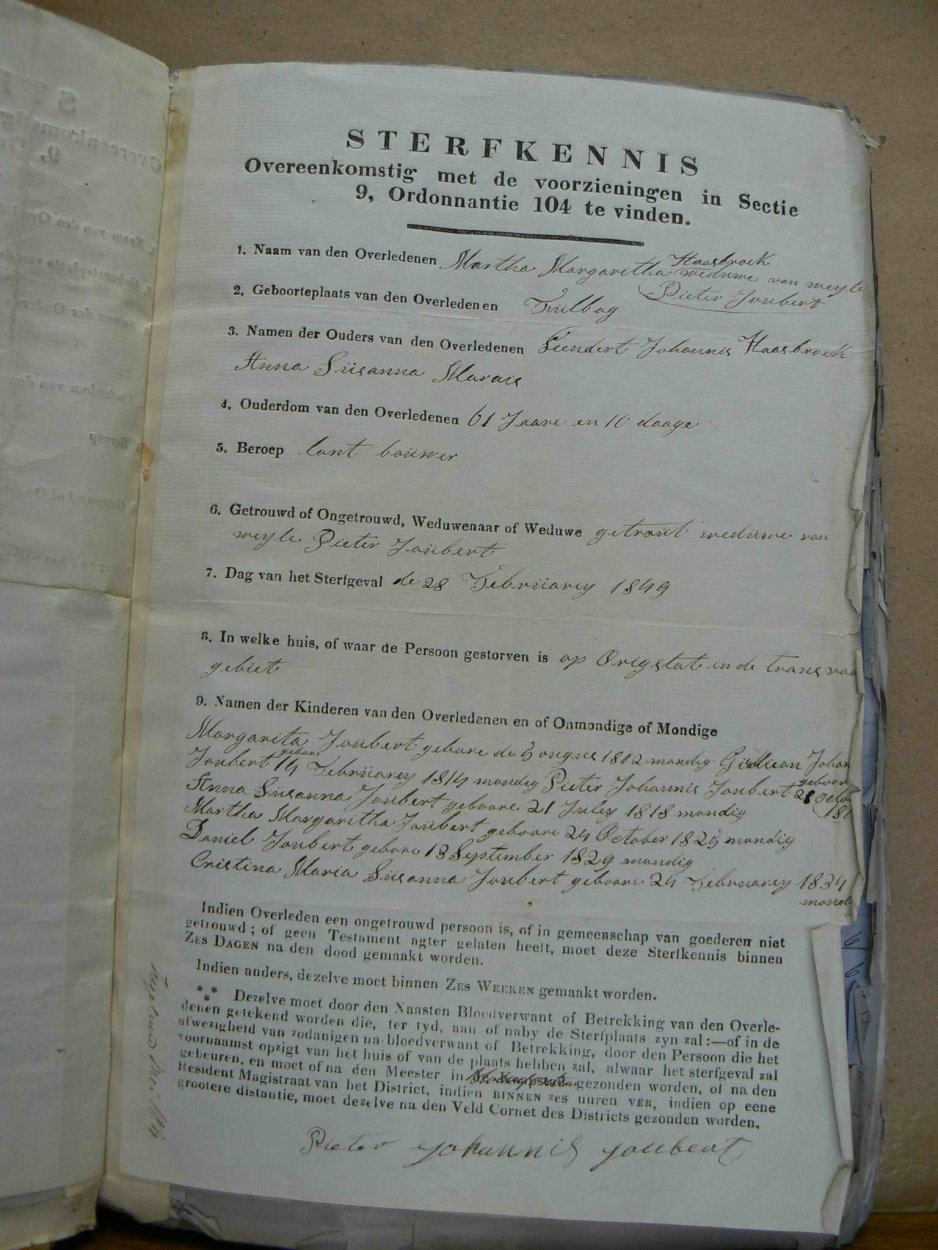 STERFKENNIS
Overeenkomstig met de voorzieningen in Sectie
9, Ordonnantie 104 te vinden.
1. Naam van den Overledenen Martha Margaritha Haasbroek weduwe van weyle
Pieter Joubert
2. Geboorteplaats van den Overledenen Tulbag
3. Namen der Ouders van den Overledenen Leendert Johannis Haasbroek
Anna Susanna Marais
4. Ouderdom van den Overledenen 61 Jaare en 10 daage
5. Beroep lant bouwer
6. Getrouwd of Ongetrouwd, Weduwenaar of Weduwe getrout weduwe van
weyle Pieter Joubert
7. Dag van het Sterfgeval de 28 Februarey 1849
8. In welke huis, of waar de Persoon gestorven is op Origstat in de transvaa
gebiet
9. Namen der Kinderen van den Overledenen en of Onmondige of Mondige
Margarita Joubert gebore de 5 1812 mondig Gideon Johan
Joubert gebore 14 Februarey 1814 mondig Pieter Johannis Joubert geboore 28 octo
181
Anna Susanna Joubert geboore 21 July 1818 mondig
Martha Margaritha Joubert geboore 24 October 1825 mondig
Daniel Joubert gebore 13 September 1829 mondig
Cristina Maria Susanna Joubert geboore 24 Februarey 1834
mondi
Indien Overleden een ongetrouwd persoon is, of in gemeenschap van goederen niet
getrouwd; of geen Testament agter gelaten heeft, moet deze Sterfkennis binnen
ZES DAGEN na den dood gemaakt worden.
Indien anders, dezelve moet binnen ZES WEEKEN gemaakt worden.
⁂ Dezelve moet door den Naasten Bloedverwant of Betrekking van den Overle-
denen getekend worden die, ter tyd, aan of naby de Sterfplaats zyn zal:—of in de
afwezigheid van zodanigen na-bloedverwant of Betrekking, door den Persoon die het
voornaamst opzigt van het huis of van de plaats hebben zal, alwaar het sterfgeval zal
gebeuren, en moet of na den Meester in gezonden worden, of na den
Resident Magistraat van het District, indien BINNEN ZES UUREN VER, indien op eene
grootere distantie, moet dezelve na den Veld Cornet des Districts gezonden worden.
Pieter Johannis Joubert